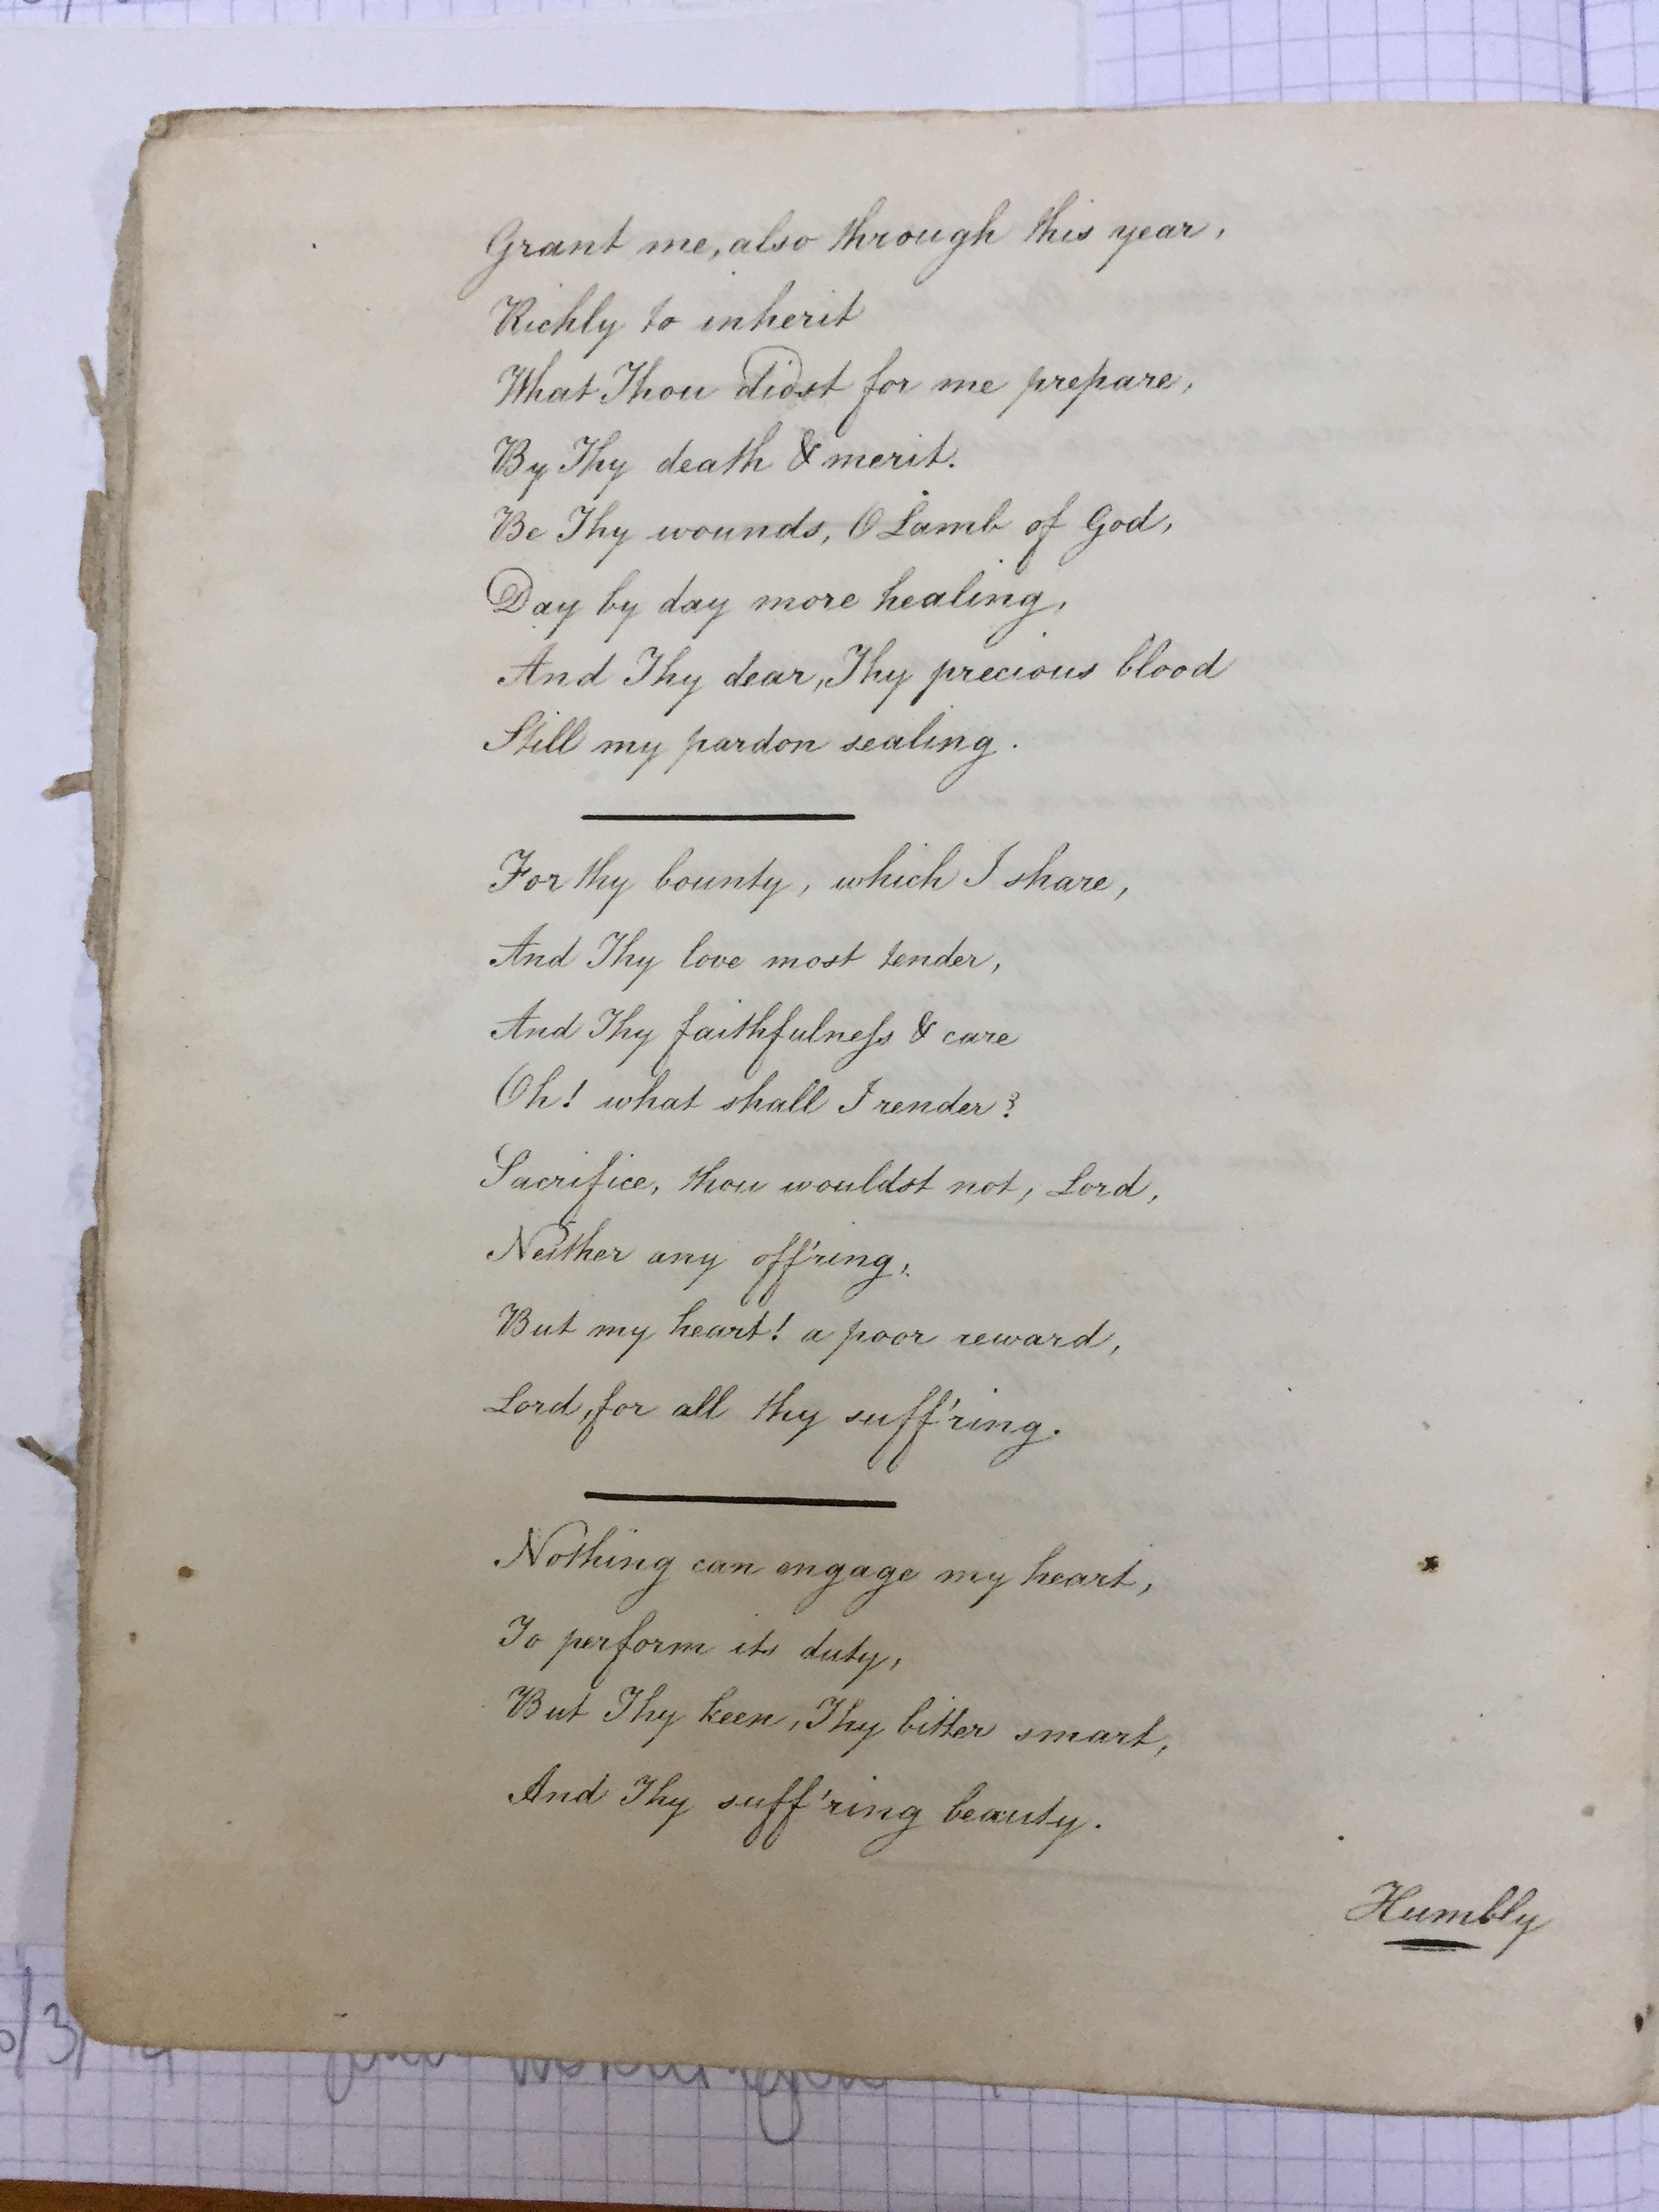 Grant me, also through this year,
Richly to inherit
What Thou didst for me prepare,
By Thy death & merit.
Be Thy wounds, O Lamb of God,
Day by day more healing,
And Thy dear, Thy precious blood
Still my pardon sealing.
For thy bounty, which I share,
And Thy love most tender,
And Thy faithfulneſs & care
Oh! what shall I render?
Sacrifice, thou wouldst not, Lord,
Neither any off'ring,
But my heart! a poor reward,
Lord, for all thy suff'ring.
Nothing can engage my heart,
To perform its duty,
But Thy keen, Thy bitter smart,
And Thy suff'ring beauty.
Humbly